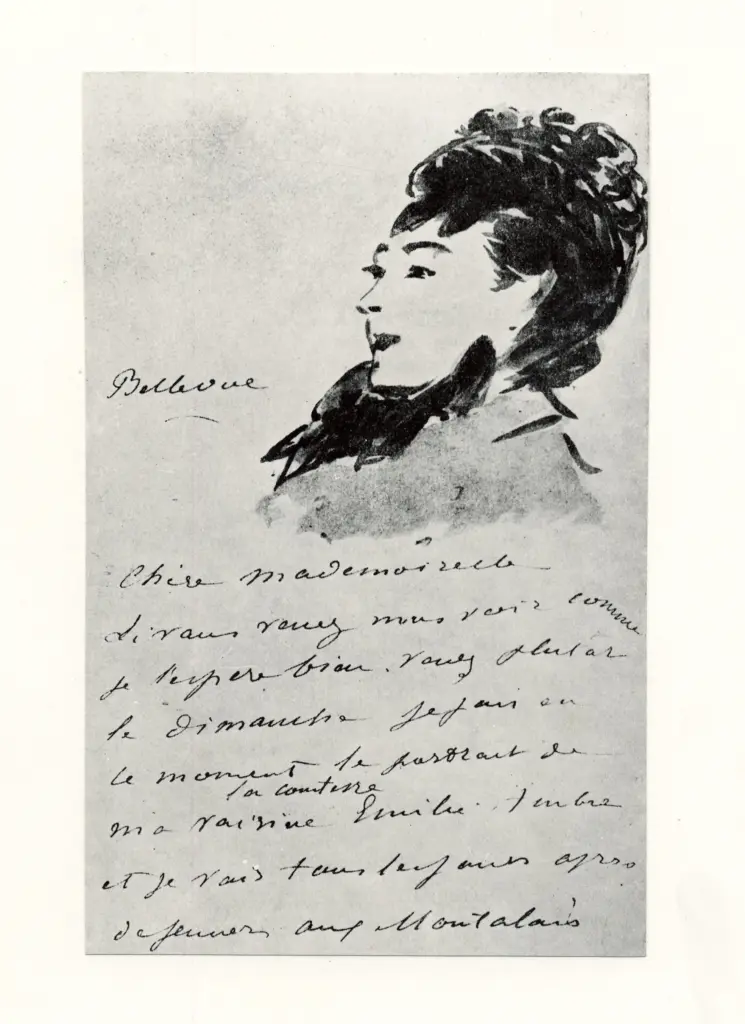 Bellevue
Chère mademoiselle
Si vous venez nous voir comme
je l'espère bien. Venez plutôt
le Dimanche je fais en
ce moment le portrait de
ma voisine la comtesse Emilie Ambre
et je vais tous les jours après
dejeuner aux Montalais